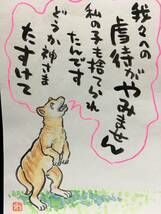 我々への
虐待がやみません
私の子も捨てられ
たんです
どうか神さま
たすけて